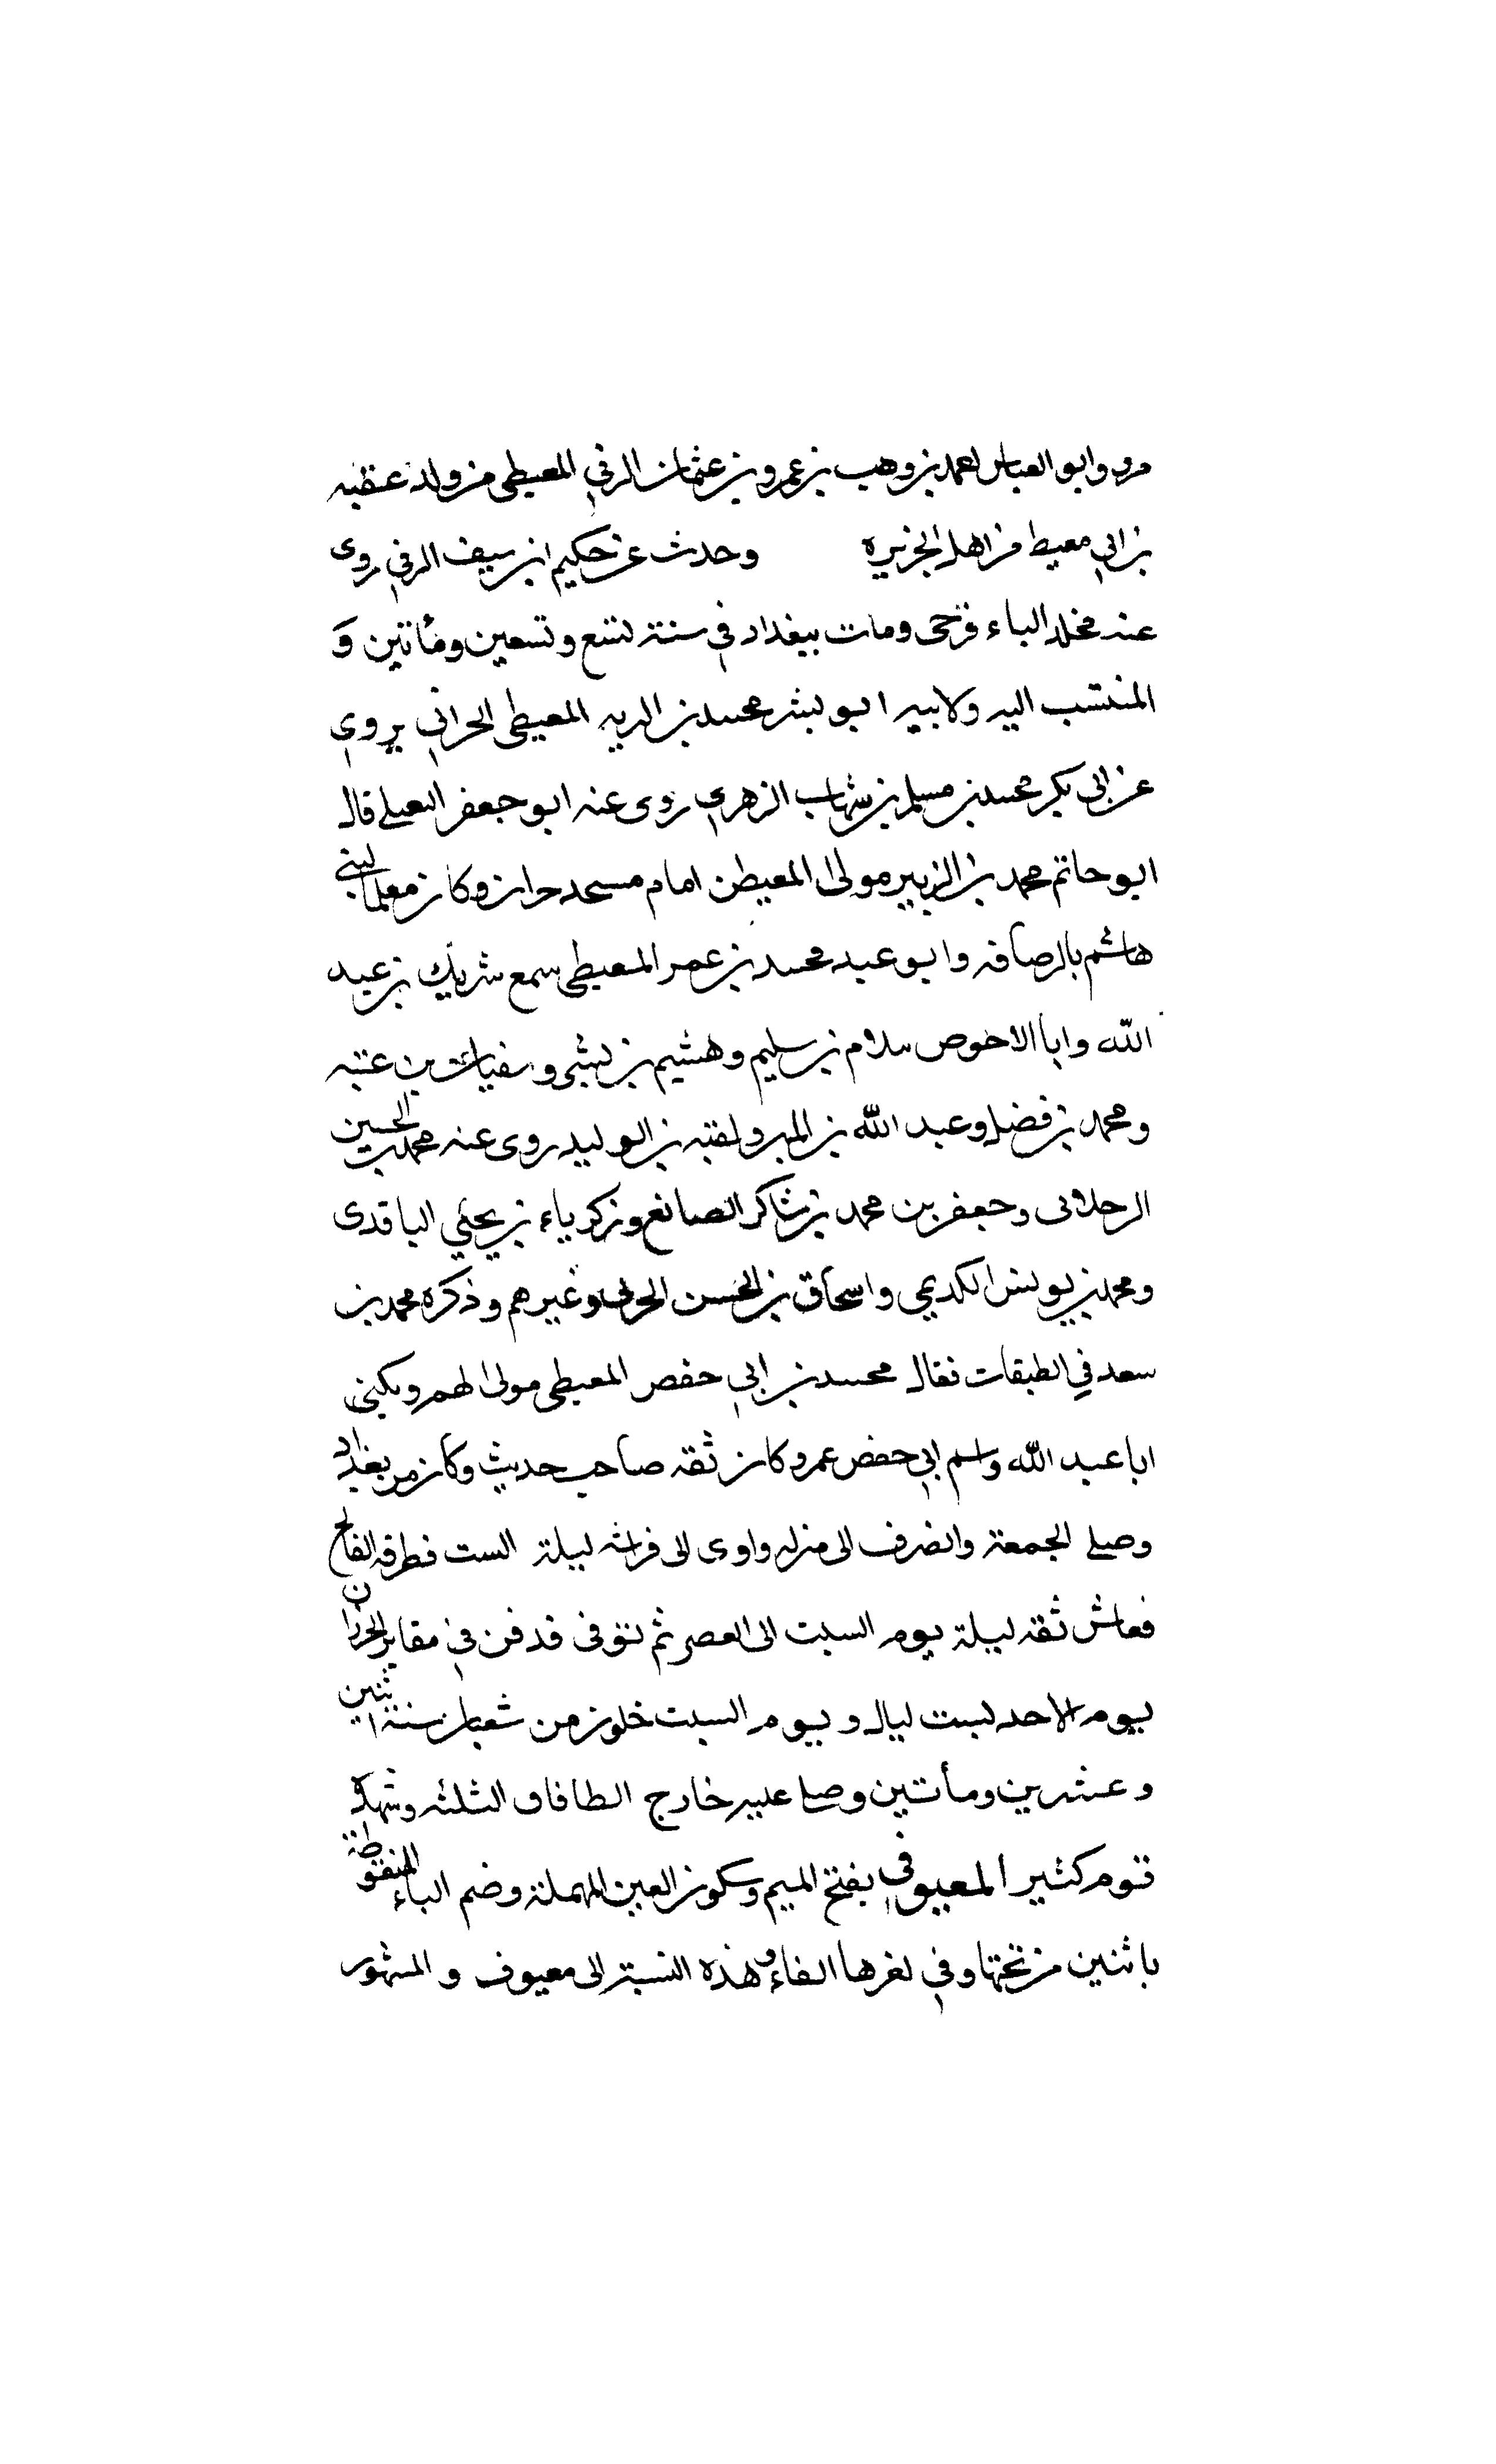 مرو وابو العباس احمد بن وهب بن عمرو بن عثمان الرقي المعيطي من ولد عقبه
بن ابي معيط من اهل الجزيره وحدث عن حكيم ابن سيف الرقي روى
عنه مخلد الباء قرحى ومات ببغداد في سنة تسع وتسعين ومأتين و
المنتسب اليه ولابيه ابو بشر محمد بن الديه المعيطي الحراني يروي
عن ابي بكر محمد بن مسلم بن شهاب الزهري روى عنه ابو جعفر النفيلي قال
ابو حاتم محمد بن الزبير مولى المعيطن امام مسجد حران وكان معلما لبني
هاشم بالرصافه وابو عبد محمد بن عمر المعيطي سمع شريك بن عبد
الله وابا الاخوص سلام بن سليم وهشيم بن بشير وسفيان بن عتبه
ومحمد بن فضل وعبد الله بن المبرو لقبه بن الوليد روى عنه محمد بن الحسين
الرجلانى وجعفر بن محمد بن شاكر الصانغ وزكرياء بن يحيي الباقدى
ومحمد بن يونس الكديمي واسحاق بن الحسن الحربى وغيرهم وذكره محمد بن
سعد في الطبقات فقال محمد بن ابي حفص المعيطي مولى لهم ويكنى
ابا عبد الله واسم ابي حفص عمر وكان ثقه صاحب حديث وكان من بغداد
وصلى الجمعة وانصرف الى منزله واوى الى فراشه ليلة الست فطرقه الفالج
فعاش ثقه ليلة يوم السبت الى العصر ثم توفى فدفن في مقابر الخزران
يوم الاحد لست ليال ويوم السبت خلون من شعبان سنة اثنين
وعشرين ومأتين وصلى عليه خارج الطافاف الثلثه وشهده
قوم كثير المعيوفي بفتح الميم وسكون العين المهملة وضم الباء المنقوطة
باثنين من تحتها وفي لغرها الفاء وهذه النسبة الى معيوف والمشهور